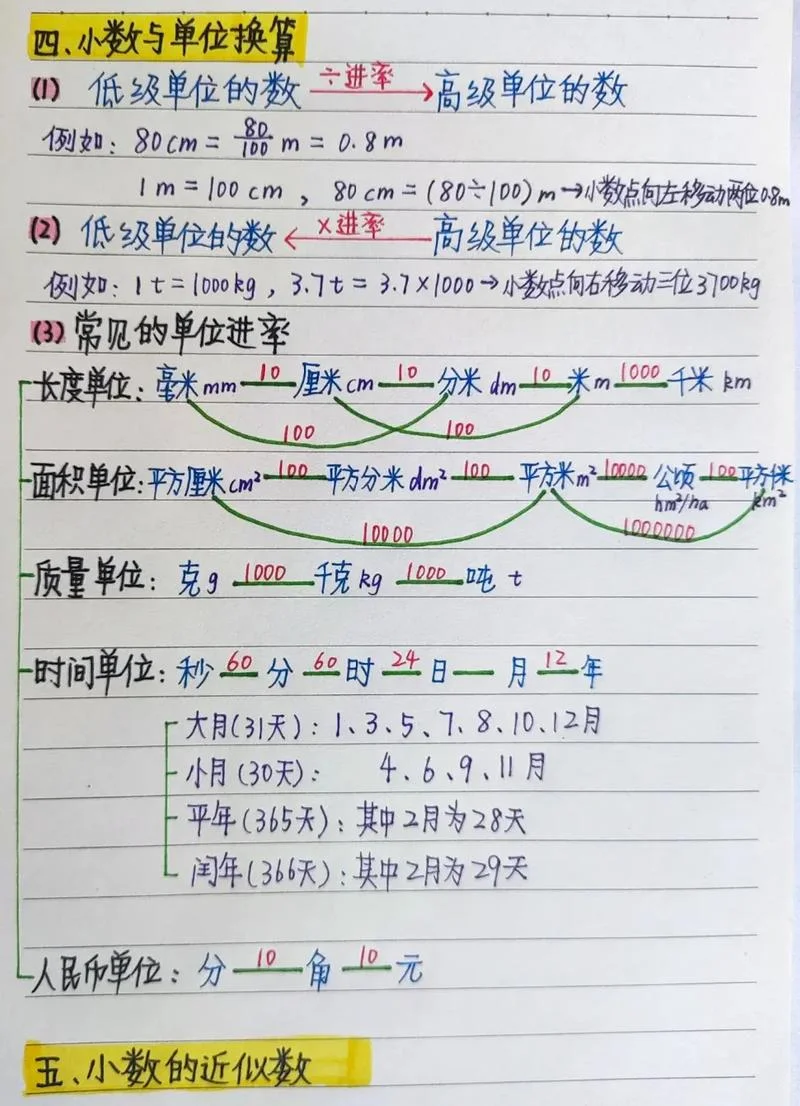 四、小数与单位换算
(1) 低级单位的数 ÷进率 → 高级单位的数
例如: 80cm = 80/100 m = 0.8m
1m = 100cm , 80cm = (80÷100)m→小数点向左移动两位0.8m
(2) 低级单位的数 ← ×进率 高级单位的数
例如: 1t = 1000kg , 3.7t = 3.7×1000→小数点向右移动三位3700kg
(3) 常见的单位进率
长度单位: 毫米mm 10 厘米cm 10 分米dm 10 米m 1000 千米km
100 100
面积单位: 平方厘米cm² 100 平方分米dm² 100 平方米m² 10000 公顷 100 平方千米
hm²/ha km²
10000 1000000
质量单位: 克g 1000 千克kg 1000 吨t
时间单位: 秒 60 分 60 时 24 日 — 月 12 年
大月(31天): 1、3、5、7、8、10、12月
小月(30天): 4、6、9、11月
平年(365天): 其中2月为28天
闰年(366天): 其中2月为29天
人民币单位: 分 10 角 10 元
五、小数的近似数